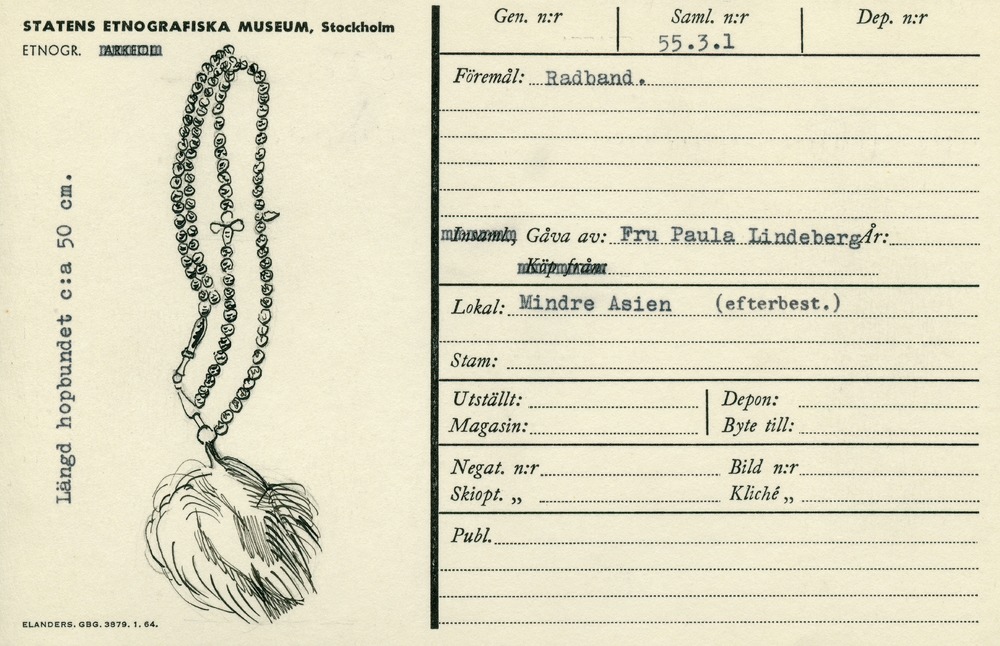 STATENS ETNOGRAFISKA MUSEUM, Stockholm
ETNOGR. ARKEOL
Längd hopbundet c:a 50 cm.
ELANDERS. GBG. 3879. 1. 64.
Gen. n:r Saml. n:r Dep. n:r
55.3.1
Föremål: Radband.
Insaml. Gåva av: Fru Paula Lindeberg År:
Köp från
Lokal: Mindre Asien (efterbest.)
Stam:
Utställt: Depon:
Magasin: Byte till:
Negat. n:r Bild n:r
Skiopt. „ Kliché „
Publ.